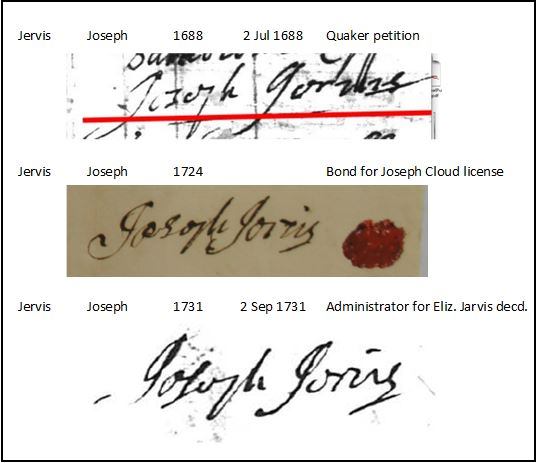 Jervis Joseph 1688 2 Jul 1688 Quaker petition
Joseph
Jervis Joseph 1724 Bond for Joseph Cloud license
Joseph Jorvis
Jervis Joseph 1731 2 Sep 1731 Administrator for Eliz. Jarvis decd.
Joseph Jorvis